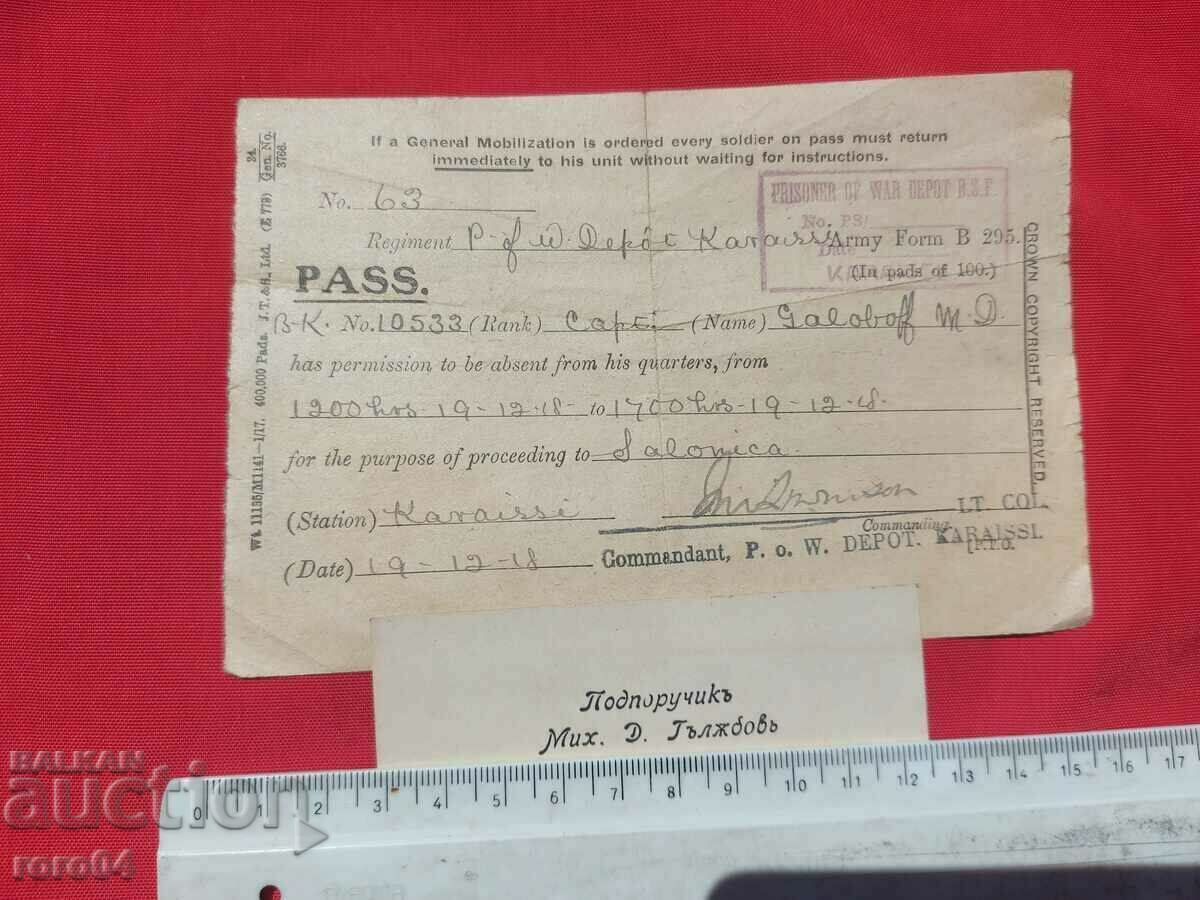 If a General Mobilization is ordered every soldier on pass must return
immediately to his unit without waiting for instructions.
34.
Gen. No.
3766.
Wt. 11135/M1141—1/17. 400,000 Pads J.T.&S., Ltd. (E 773)
No. 63
PRISONER OF WAR DEPOT B.S.F.
No. PS/
Date
Regiment P. of W. Depôt Karaissi Army Form B 295.
PASS. (In pads of 100.)
B-K. No. 10533 (Rank) Capt. (Name) Galoboff M.D.
has permission to be absent from his quarters, from
1200 hrs-19-12-18- to 1700 hrs-19-12-18.
for the purpose of proceeding to Salonica.
(Station) Karaissi LT COL.
Commanding.
(Date) 19-12-18 Commandant, P. o. W. DEPOT. KARAISSI.
[P.T.O.
CROWN COPYRIGHT RESERVED.
Подпоручикъ
Мих. Д. Гължбовъ
BALKAN
auction
roro04
0 1 2 3 4 5 6 7 8 9 10 11 12 13 14 15 16 17